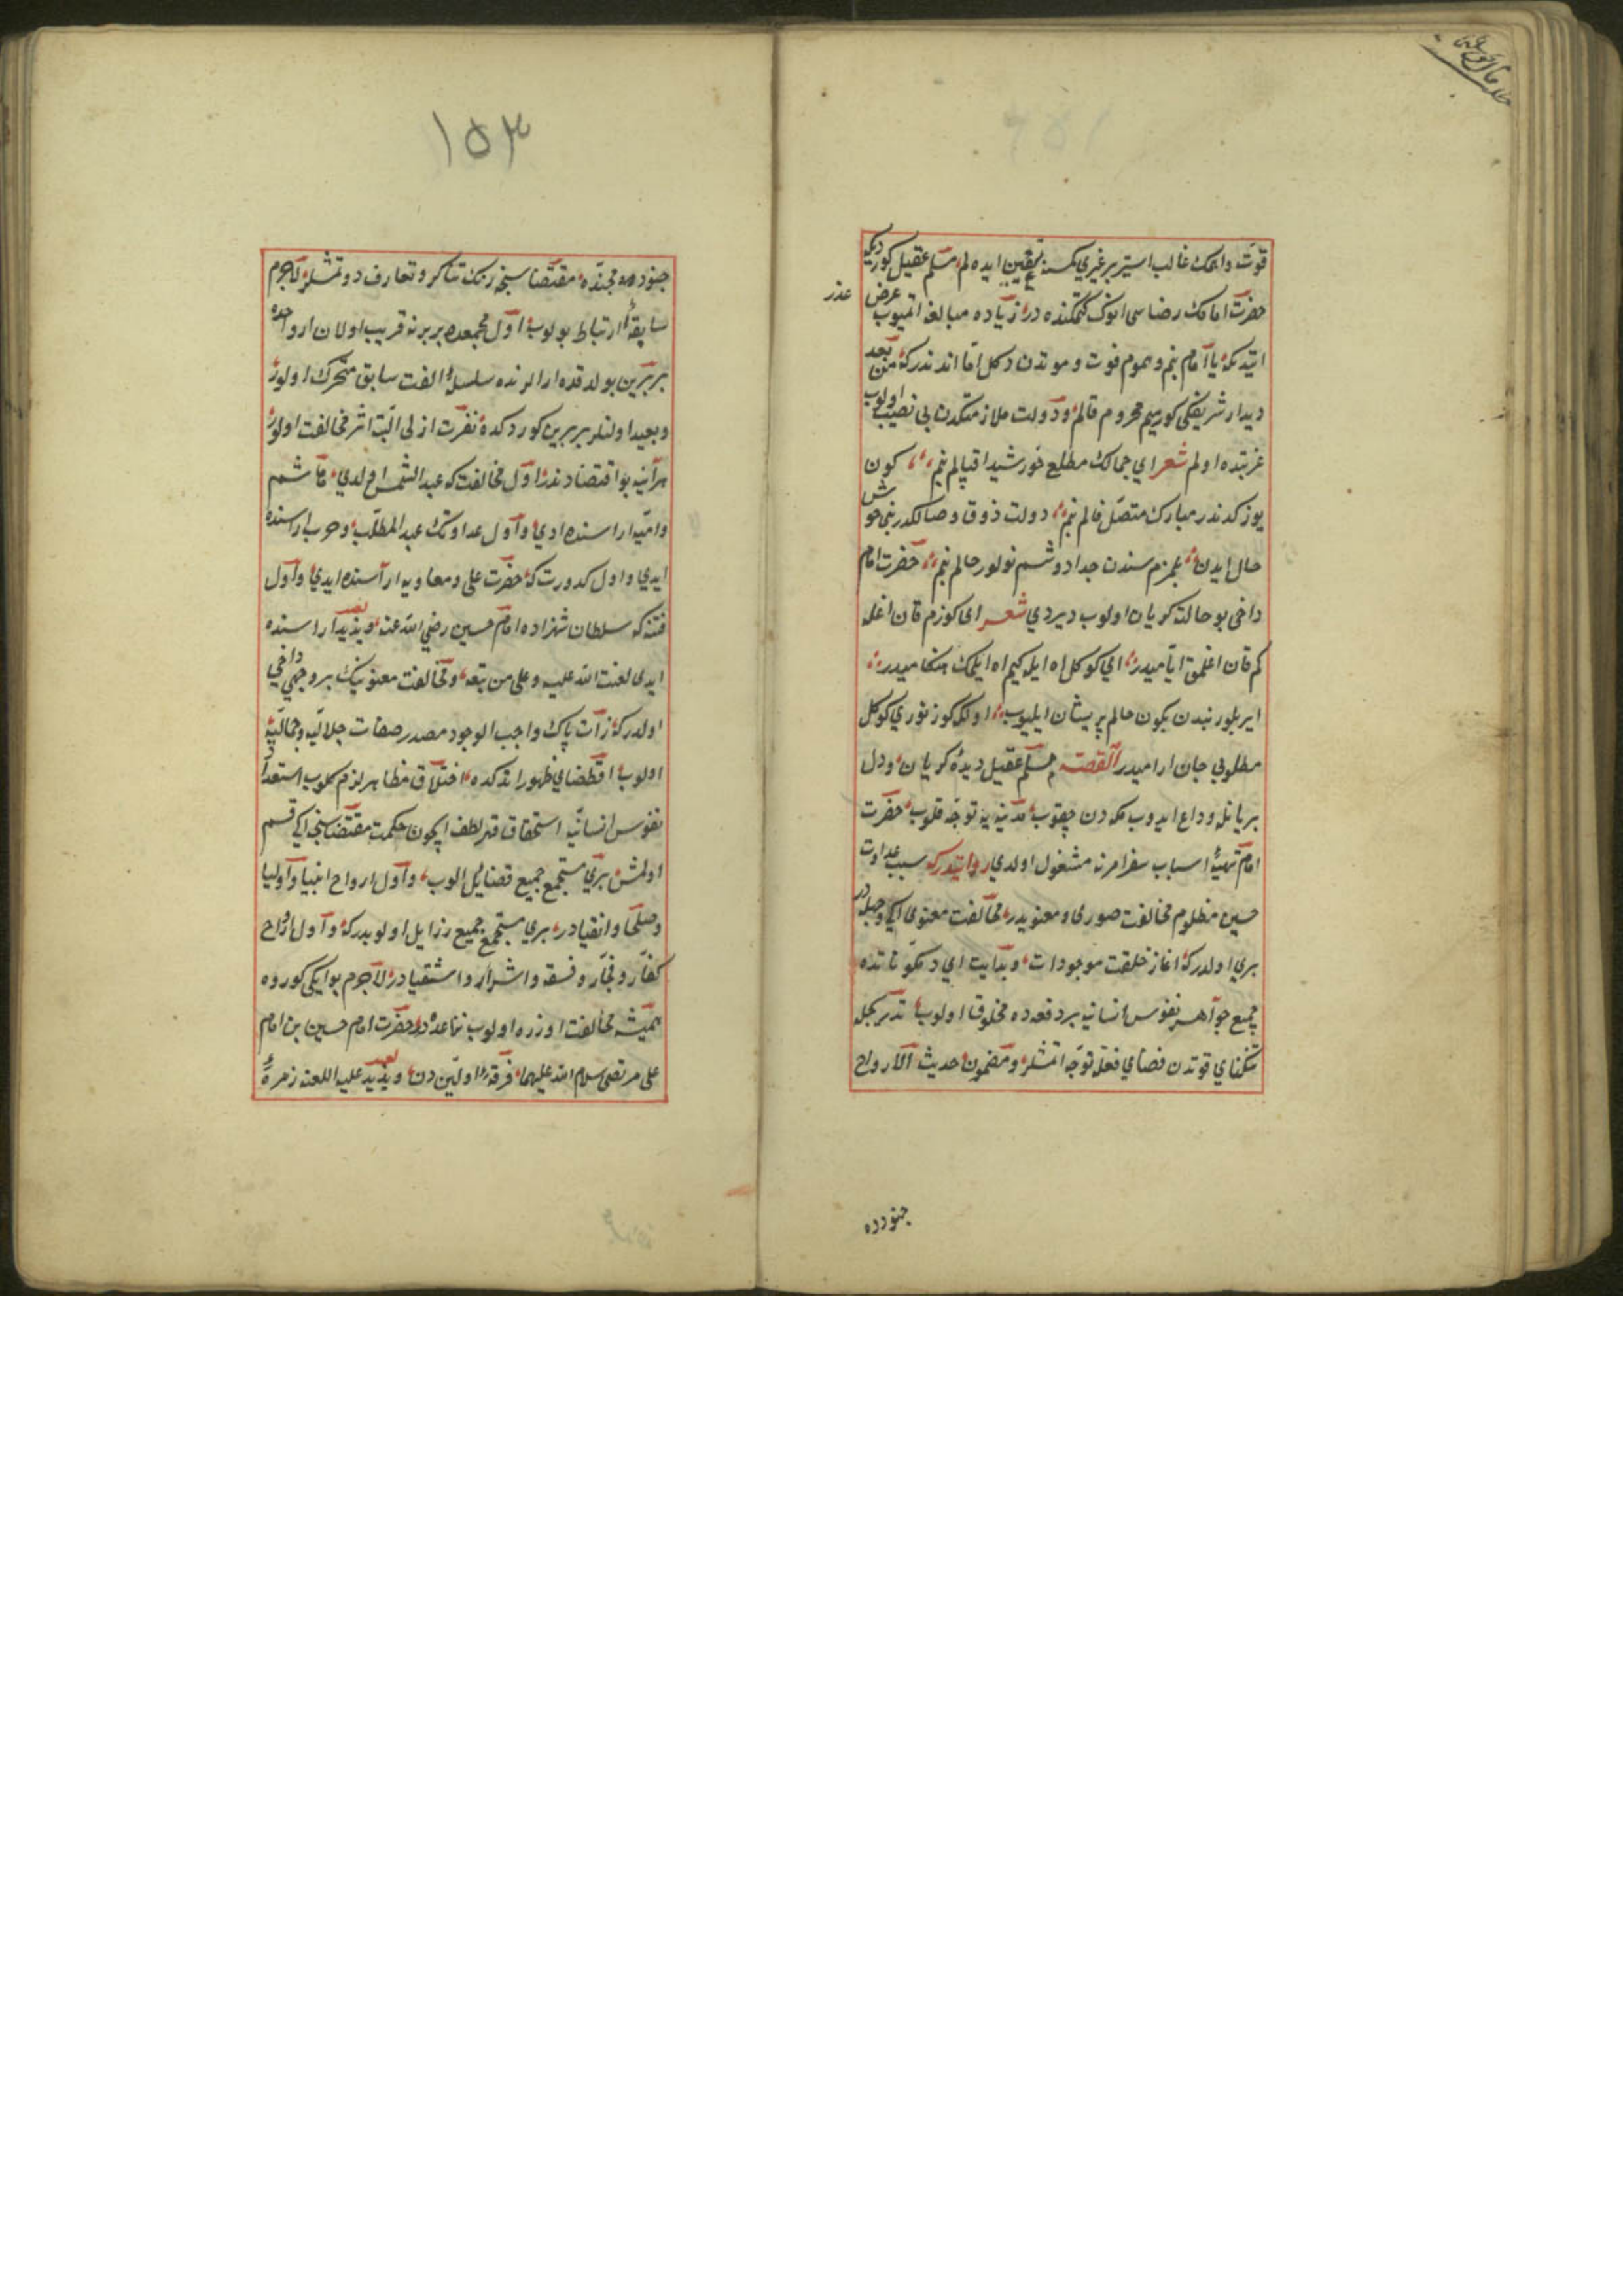 قوت واهمك غالب استر بر غيري كمسنه تعيين ايده لم مسلم عقيل كوردیكه
حضرت امامك رضاسی انوك كتمكنده در زياده مبالغه اتميوب عرض
عذر
ايتديكه يا امام بنم وهموم فوت وموتدن دكل اما اندندركه من بعد
ديدار شريفكی كورميم محروم قالم ودولت ملازمتكدن بی نصيب اولوب
غربتده اولم شعر ای جمالك مطلع خورشيد اقبالم بنم كون
يوزكدندر مبارك متصل فالم بنم دولت ذوق وصالكدر بنی خوش
حال ايدن بلمزم سندن جدا دوشم نولور حالم بنم حضرت امام
داخی بو حالته كريان اولوب ديردی شعر ای كوزم قان اغله
كم قان اغلمق اياميدر ای كوكل اه ايله كيم اه ايلمك هنكاميدر
ايريلور بندن بكون حالم پريشان ايليوب اولكه كوز نوری كوكل
مطلوبی جان آراميدر القصه مسلم عقيل ديده كريان ودل
بريانله وداع ايدوب مكه دن چقوب مدينه يه توجه قلوب حضرت
امام تهيئه اسباب سفر امرنه مشغول اولدی روايتدركه سبب عداوت
حسين مظلوم مخالفت صوری ومعنويدر مخالفت معنوی ايكی وجهله در
بری اولدركه اغاز خلقت موجودات وبدايت ای مكوناتده
جميع جواهر نفوس انسانيه بر دفعه ده مخلوق اولوب تدريجله
تنكنای قوتدن فضای فعله توجه اتمشلر ومضمون حديث الارواح
جنودده
١٥٣
جنود مجنده مقتضاسنجه رنك تناكر وتعارف دوتمشلر لاجرم
سابقه ارتباط بولوب اول مجمعده بر برنه قريب اولان ارواحده
بر برين بولدقده ارالرنده سلسله الفت سابق متحرك اولور
وبعيد اولنلر بر برين كوردكده نفرت ازلی البته اثر مخالفت اولور
هرآينه بو اقتضادندر اول مخالفت كه عبد الشمس اولدی هاشم
واميه اراسنده ادی واول عداوتك عبد المطلب وحرب اراسنده
ايدی واول كدورت كه حضرت علی ومعاويه اراسنده ايدی واول
فتنه كه سلطان شهزاده امام حسين رضی الله عنه ويزيد اراسنده
ايدی لعنت الله عليه وعلی من تبعه ومخالفت معنوينك بر وجهی داخی
اولدركه ذات پاك واجب الوجود مصدر صفات جلاليه وجماليه
اولوب اقطضای ظهور اتدكده اختلاق مظاهر لازم كلوب استعداد
نفوس انسانيه استحقاق قهر لطف ايچون حكمت مقتضاسنجه ايكی قسم
اولمش بری مستجمع جميع فضائل الوب واول ارواح انبيا واوليا
وصلحا واتقيادر بری مستجمع جميع رزايل اولوبدركه واول ارواح
كفار وفجار وفسقه واشرار واشقيادر لاجرم بو ايكی كوروه
هميشه مخالفت اوزره اولوب حضرت امام حسين بن امام
علی مرتضی سلام الله عليهما فرقه اولين دن ويزيد عليه اللعنه زمره